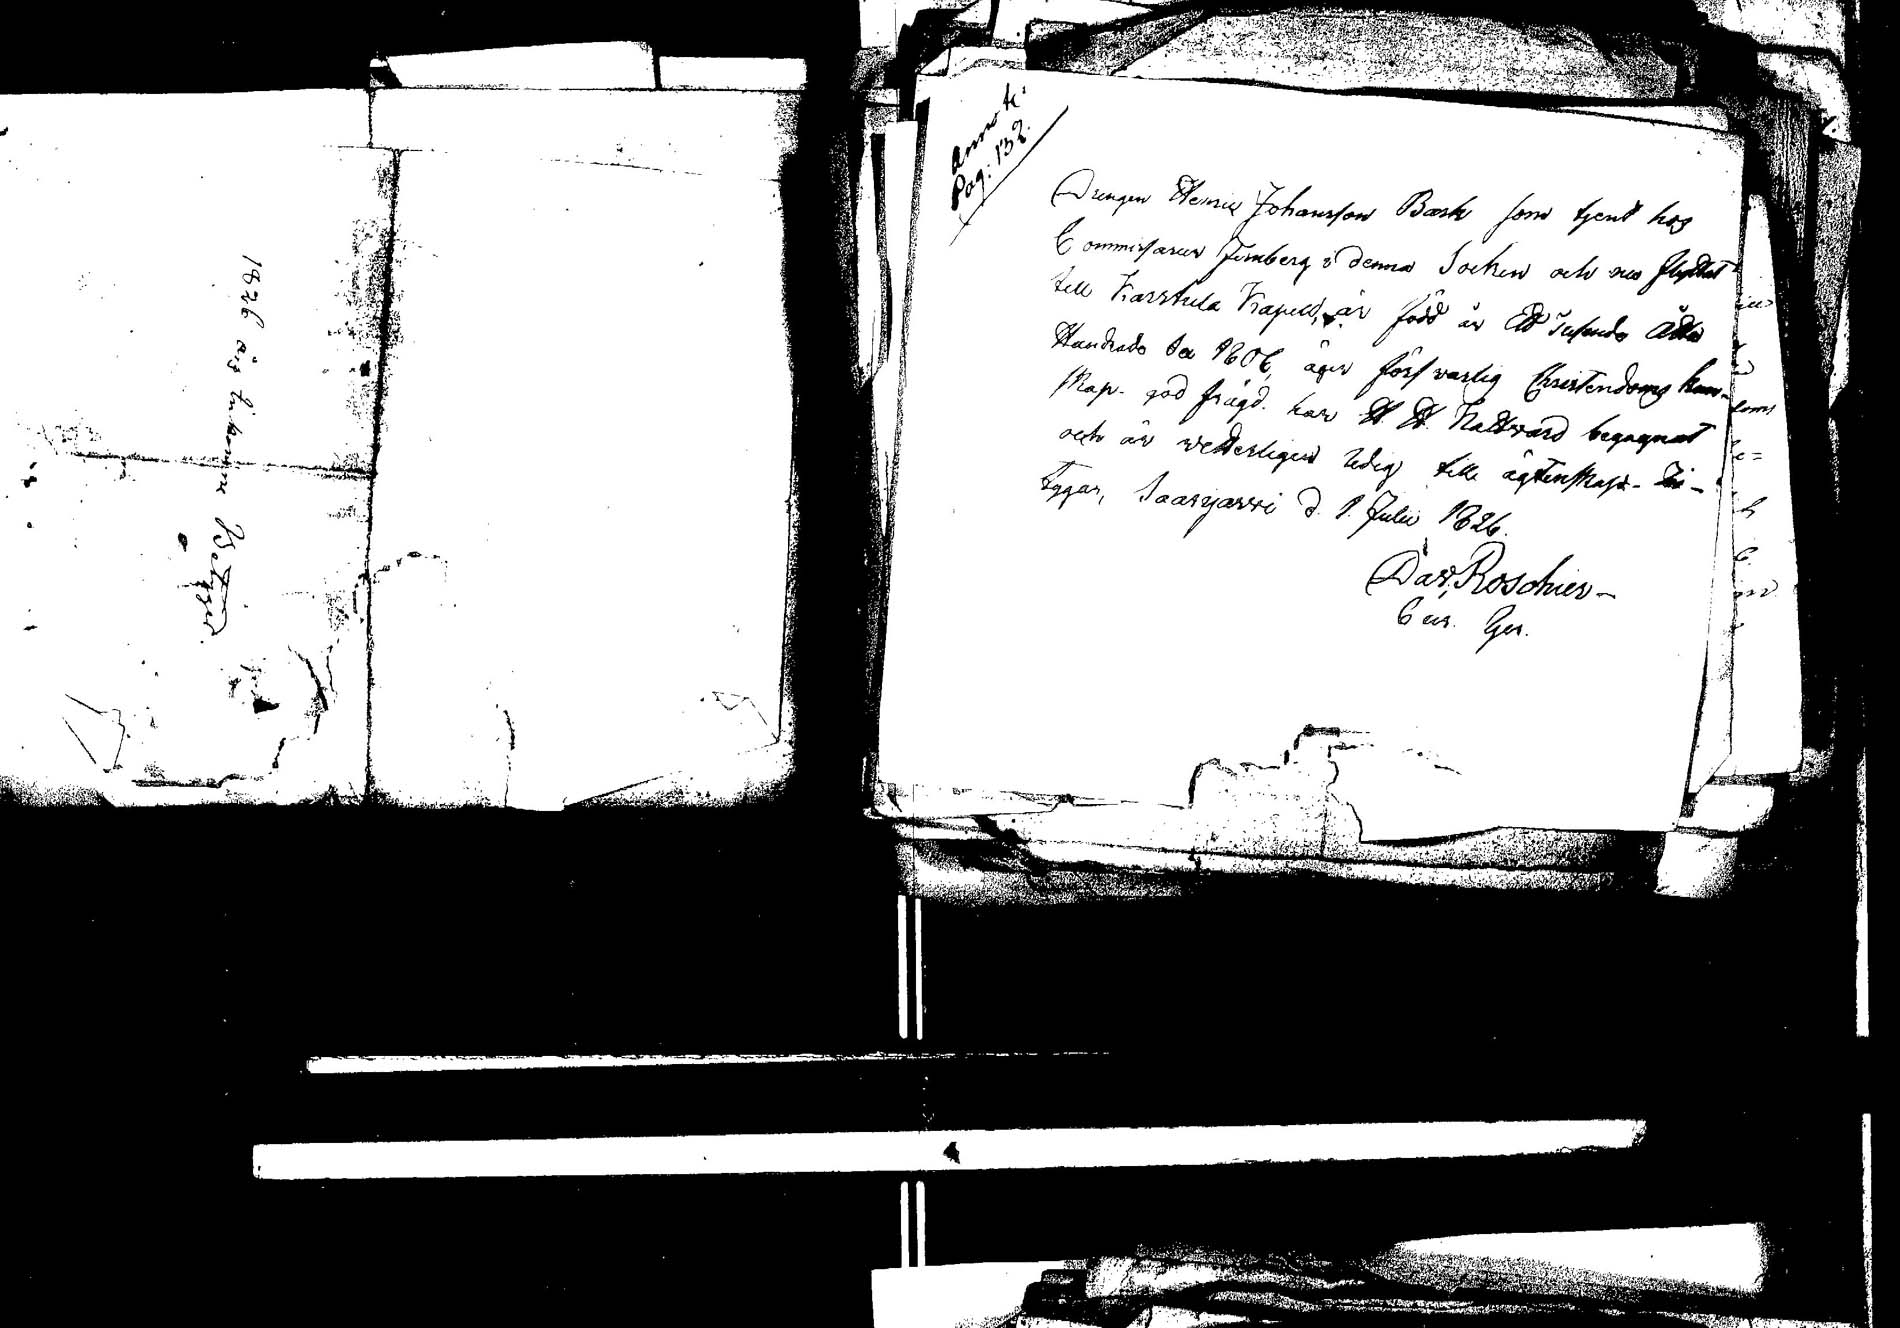 1826 års inkomne Betyger.
Annot:
Pag: 132.
Drengen Henric Johansson Bask som tjent hos
Commissarien Jernberg i denna Socken och nu flyttat
till Karstula Kapell, är född år Ett Tusende Åtta
Hundrade Sex 1806, äger försvarlig Christendoms kun-
skap. god frägd. har H. H. Nattvard begagnat
och är wetterligen ledig till ägtenskap. Be-
tygar, Saarijarvi d. 1. Julii 1826.
Dav. Roschier
Cur. Ger.